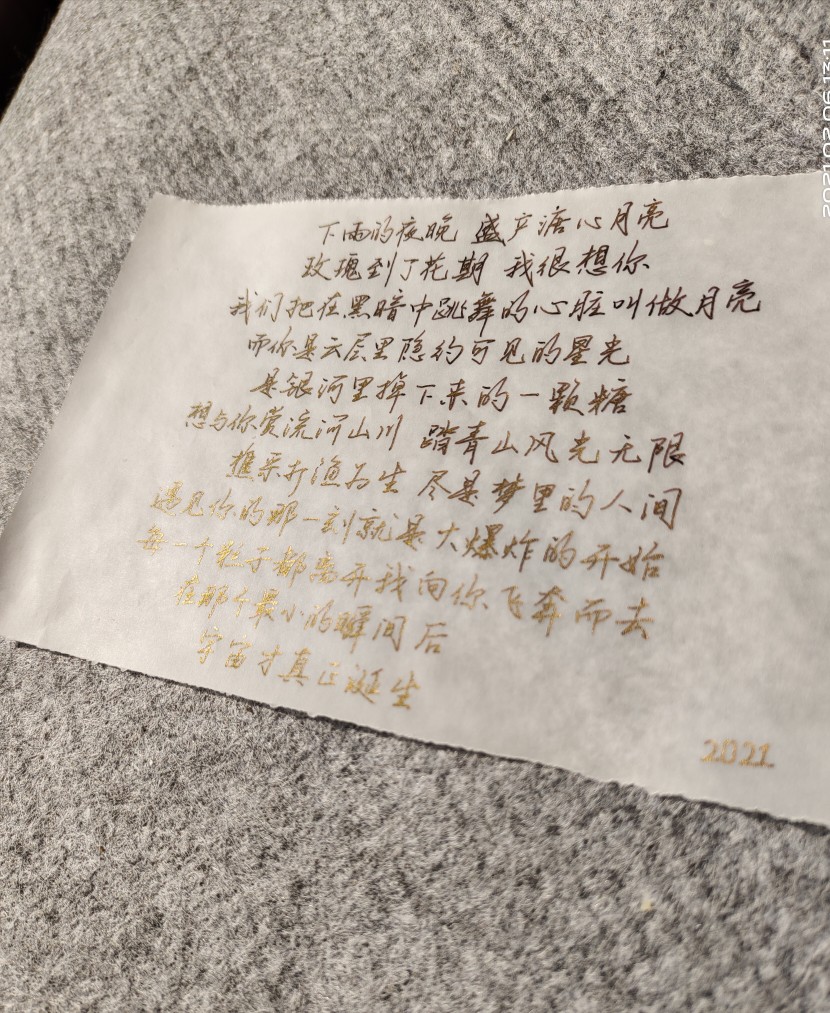 下雨的夜晚 盛产溏心月亮
玫瑰到了花期 我很想你
我们把在黑暗中跳舞的心脏叫做月亮
而你是云层里隐约可见的星光
是银河里掉下来的一颗糖
想与你赏流河山川 踏青山风光无限
樵采打渔为生 尽是梦里的人间
遇见你的那一刻就是大爆炸的开始
每一个粒子都离开我向你飞奔而去
在那个最小的瞬间后
宇宙才真正诞生
2021